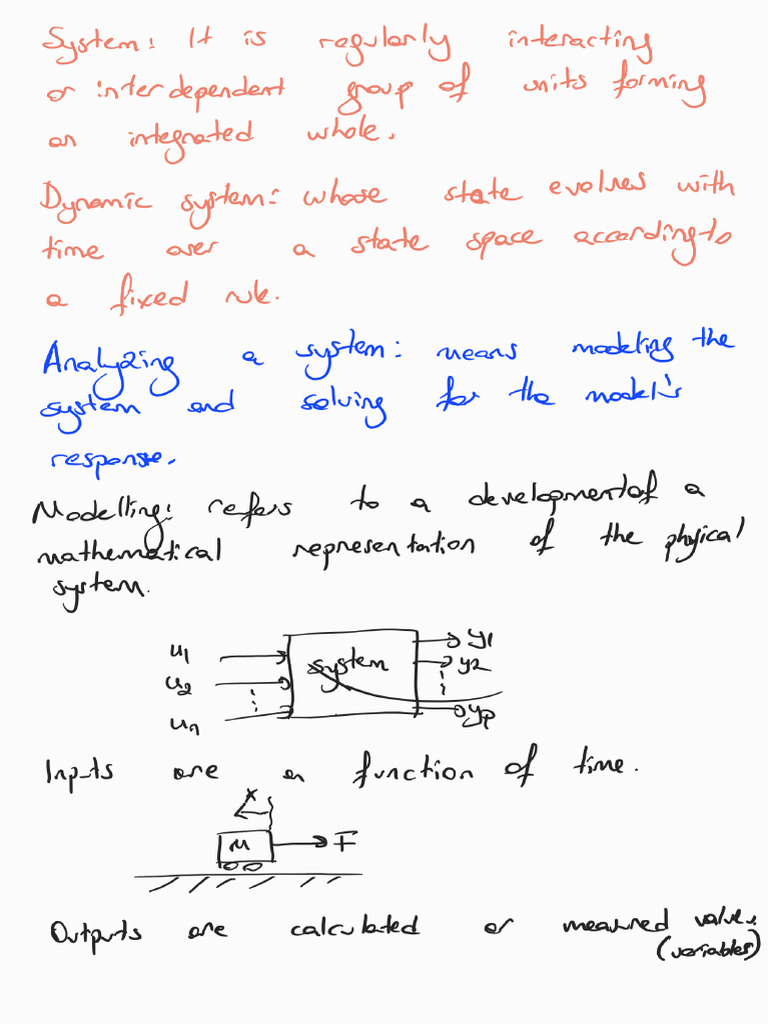 System: It is regularly interacting
or interdependent group of units forming
an integrated whole.
Dynamic system: whose state evolves with
time over a state space according to
a fixed rule.
Analyzing a system: means modeling the
system and solving for the model's
response.
Modelling: refers to a development of a
mathematical representation of the physical
system.
u1 system y1
u2 y2
un yp
Inputs are a function of time.
x
M F
Outputs are calculated or measured values
(variables)